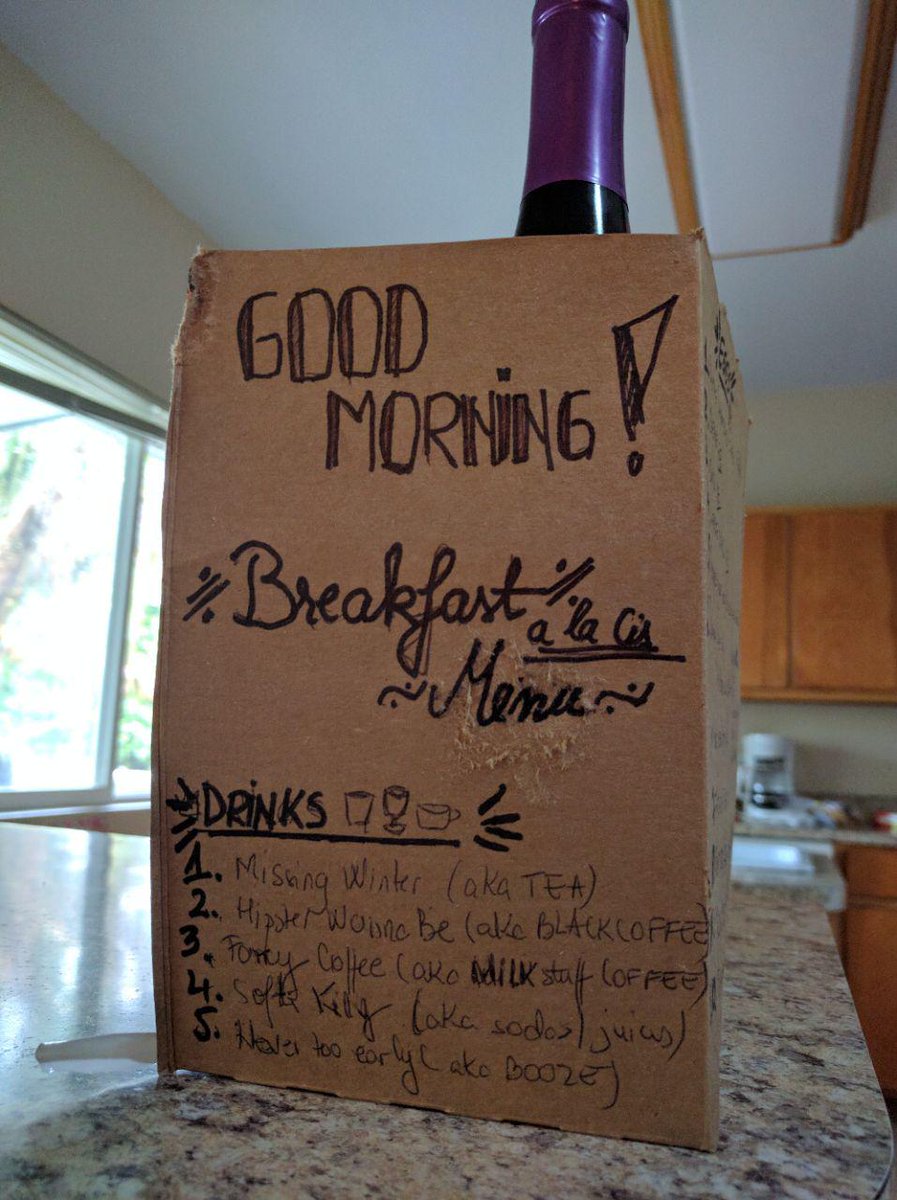 GOOD
MORNING!
Breakfast
a la Cis
Menu
DRINKS
1. Missing Winter (aka TEA)
2. Hipster Wanna Be (aka BLACK COFFEE)
3. Coffee (aka MILK stuff COFFEE)
4. Kitty (aka sodas/juices)
5. Never too early (aka BOOZE)